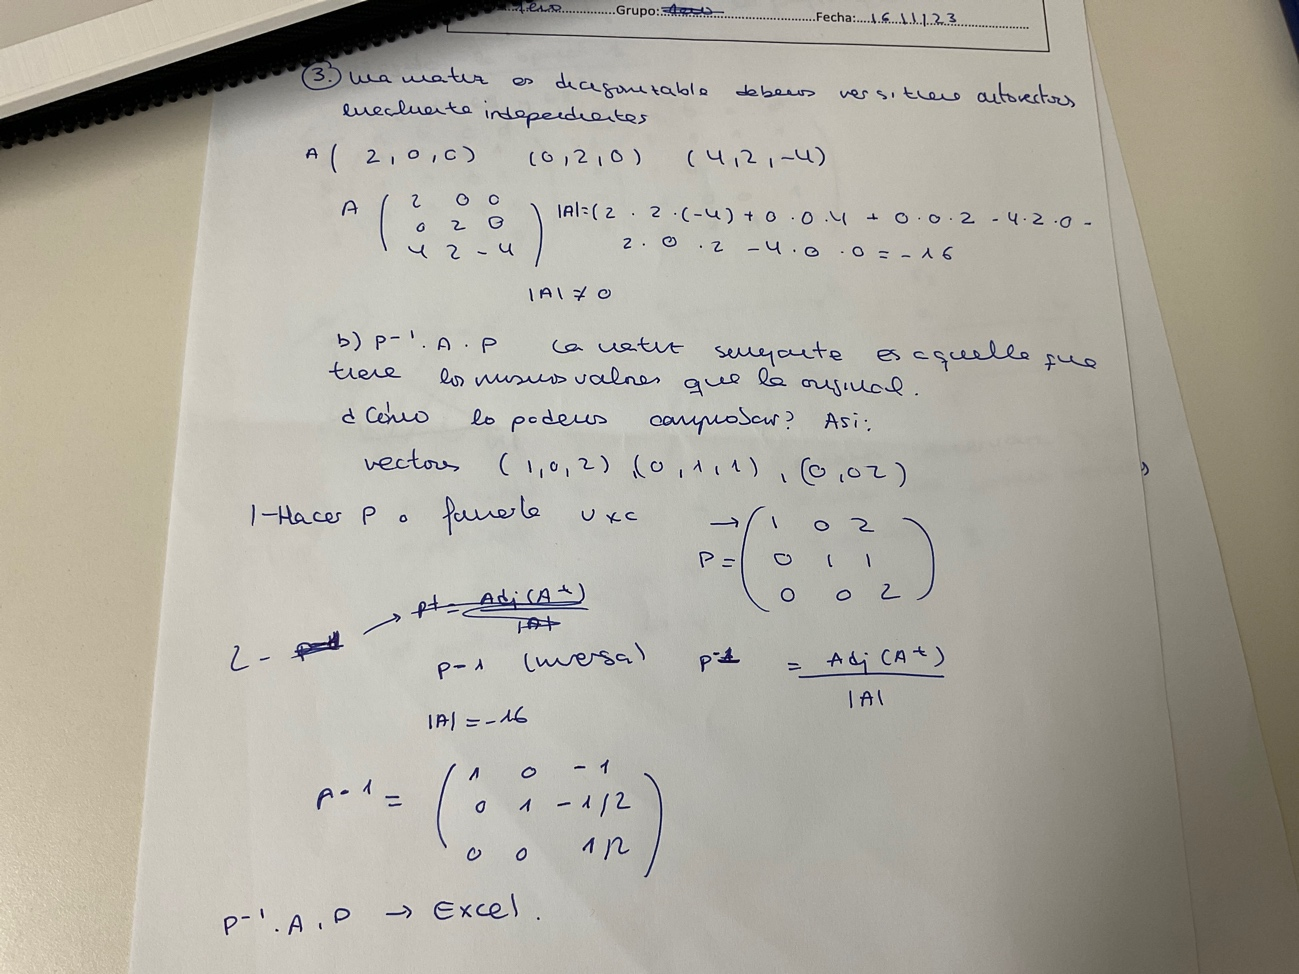 Grupo: Fecha: 16 11/23
3. Una matriz es diagonizable debemos ver si tiene autovectores
linealmente independientes
A ( 2, 0, 0) (0, 2, 0) (4, 2, -4)
A ( 2 0 0 |A|=(2 . 2 .(-4) + 0 . 0 . 4 + 0 . 0 . 2 - 4 . 2 . 0 -
0 2 0
4 2 -4 ) 2 . 0 . 2 - 4 . 0 . 0 = -16
|A| ≠ 0
b) P-1 . A . P La matriz semejante es aquella que
tiene los mismos valores que la original.
¿Cómo lo podemos comprobar? Asi:
vectores (1, 0, 2) , (0, 1, 1) , (0, 0 2)
1-Hacer P o VxC
→
P = ( 1 0 2
0 1 1
0 0 2 )
2 - → P-1 = Adj (A t) / |A|
P-1 (inversa) P-1 = Adj (A t)
|A|
|A| = -16
A-1 = ( 1 0 -1
0 1 -1/2
0 0 1/2 )
P-1 . A . P → Excel.